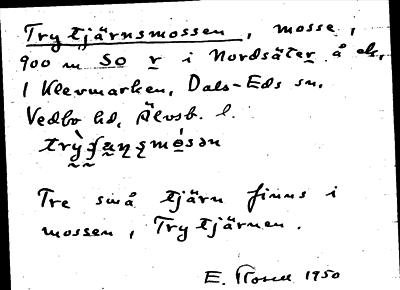 Trytjärnsmossen, mosse,
900 m So r i Nordsäter å els.
1 Klevmarken, Dals-Eds sn.
Vedbo hd, Älvsb. l.
Tre små tjärn finns i
mossen, Trytjärnen.
E. 1950